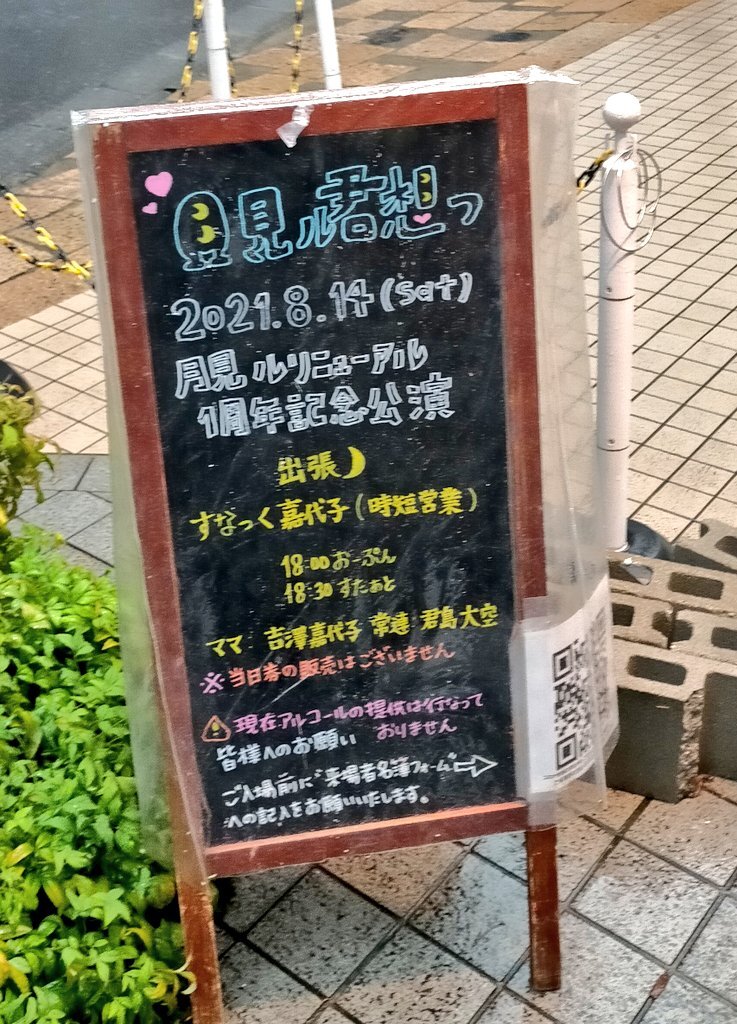 月見ル君想フ
2021.8.14(Sat)
月見ルリニューアル
1周年記念公演
出張
すなっく嘉代子(時短営業)
18:00 おーぷん
18:30 すたぁと
ママ 吉澤嘉代子 常連 君島大空
※当日券の販売はございません
現在アルコールの提供は行なって
おりません
皆様へのお願い
ご入場前に"来場者名簿フォーム"→
への記入をお願いいたします。